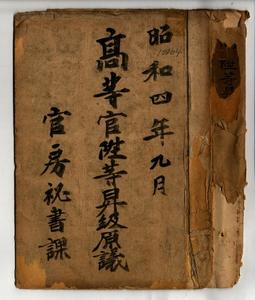 昭和四年九月
高等官陞等昇級原議
官房祕書課